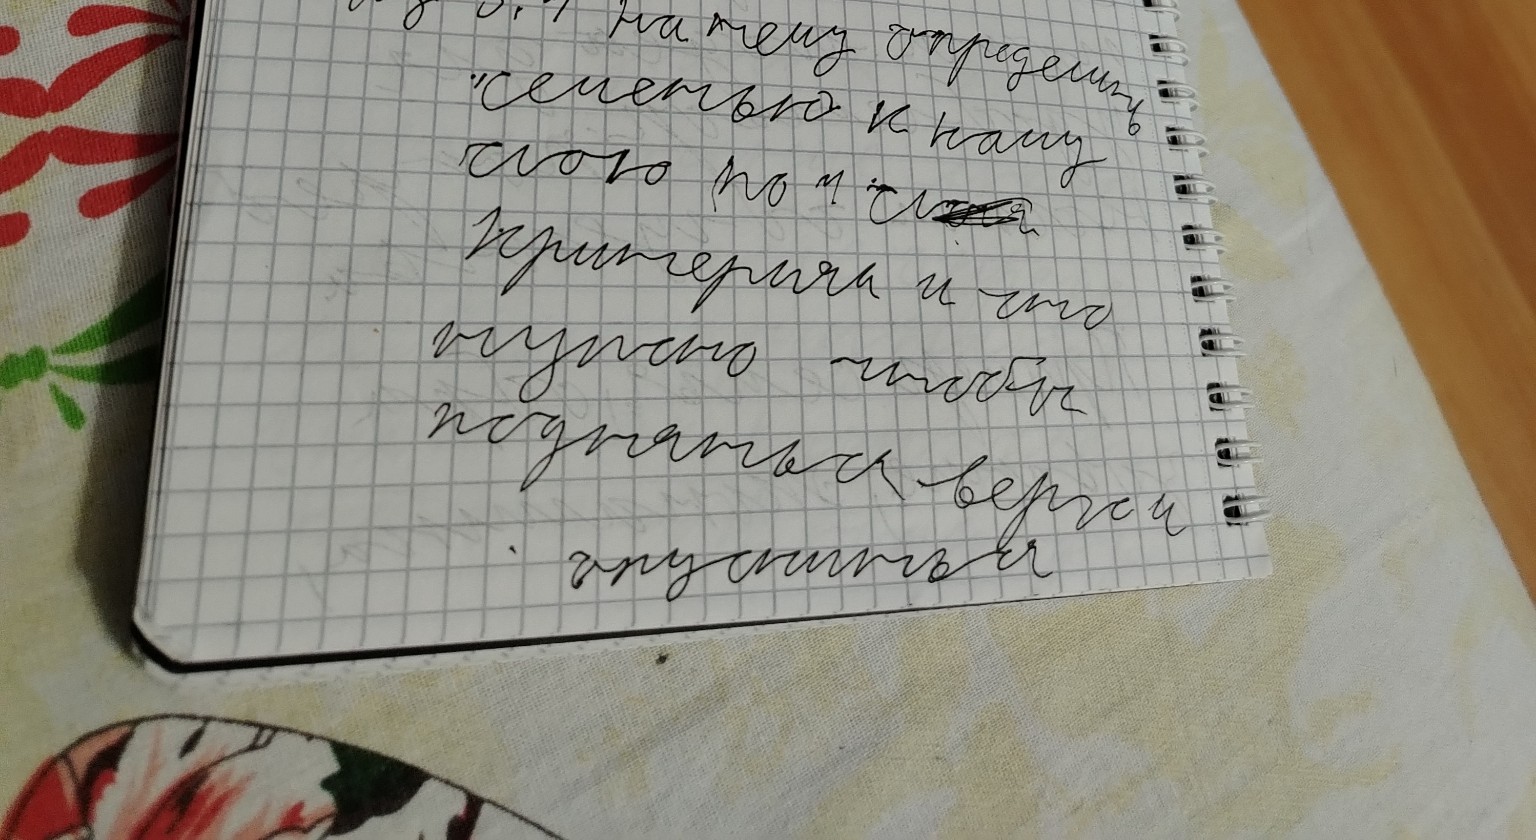 на тему определить
семью к каму
слою по 4
критериям и что
нужно чтобы
подняться вверх и
опуститься